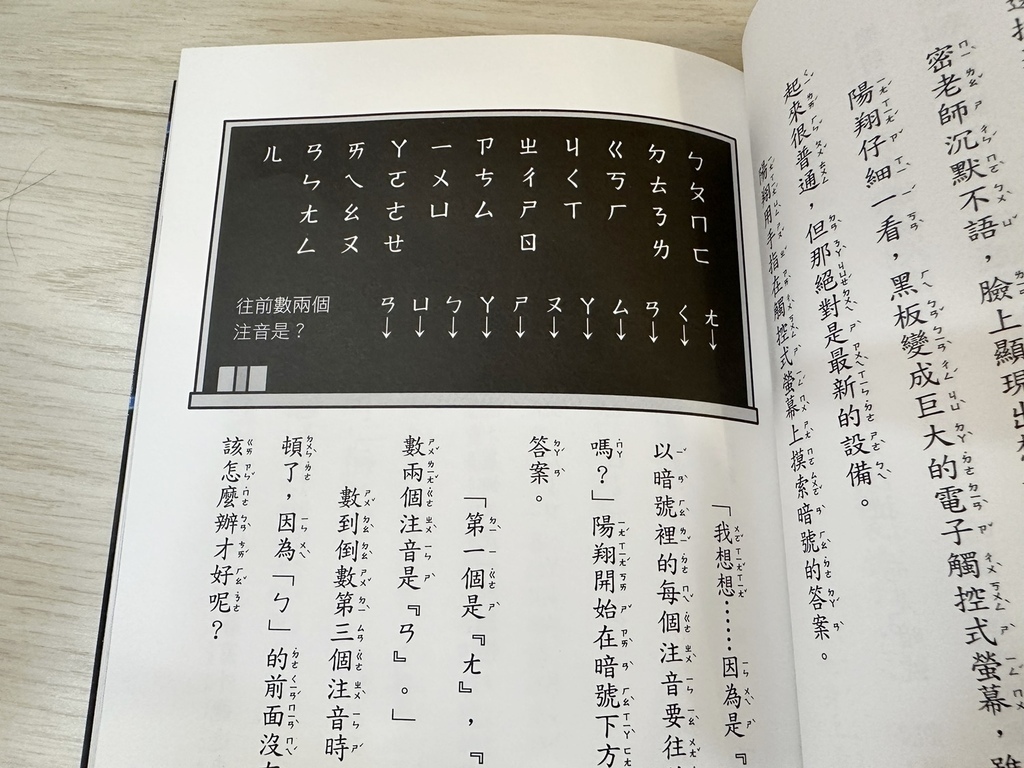 密老師沉默不語，臉上顯現出
陽翔仔細一看，黑板變成巨大的電子觸控式螢幕，雖
起來很普通，但那絕對是最新的設備。
陽翔用手指在觸控式螢幕上摸索暗號的答案。
ㄅㄆㄇㄈ
ㄉㄊㄋㄌ
ㄍㄎㄏ
ㄐㄑㄒ
ㄓㄔㄕㄖ
ㄗㄘㄙ
ㄧㄨㄩ
ㄚㄛㄜㄝ
ㄞㄟㄠㄡ
ㄢㄣㄤㄥ
ㄦ
往前數兩個
注音是？
ㄤ↓
ㄑ↓
ㄢ↓
ㄙ↓
ㄚ↓
ㄡ↓
ㄕ↓
ㄚ↓
ㄅ↓
ㄩ↓
ㄢ↓
「我想想……因為是『
以暗號裡的每個注音要往
嗎？」陽翔開始在暗號下方
答案。
「第一個是『ㄤ』，『
數兩個注音是『ㄢ』。」
數到倒數第三個注音時
頓了，因為「ㄅ」的前面沒
該怎麼辦才好呢？